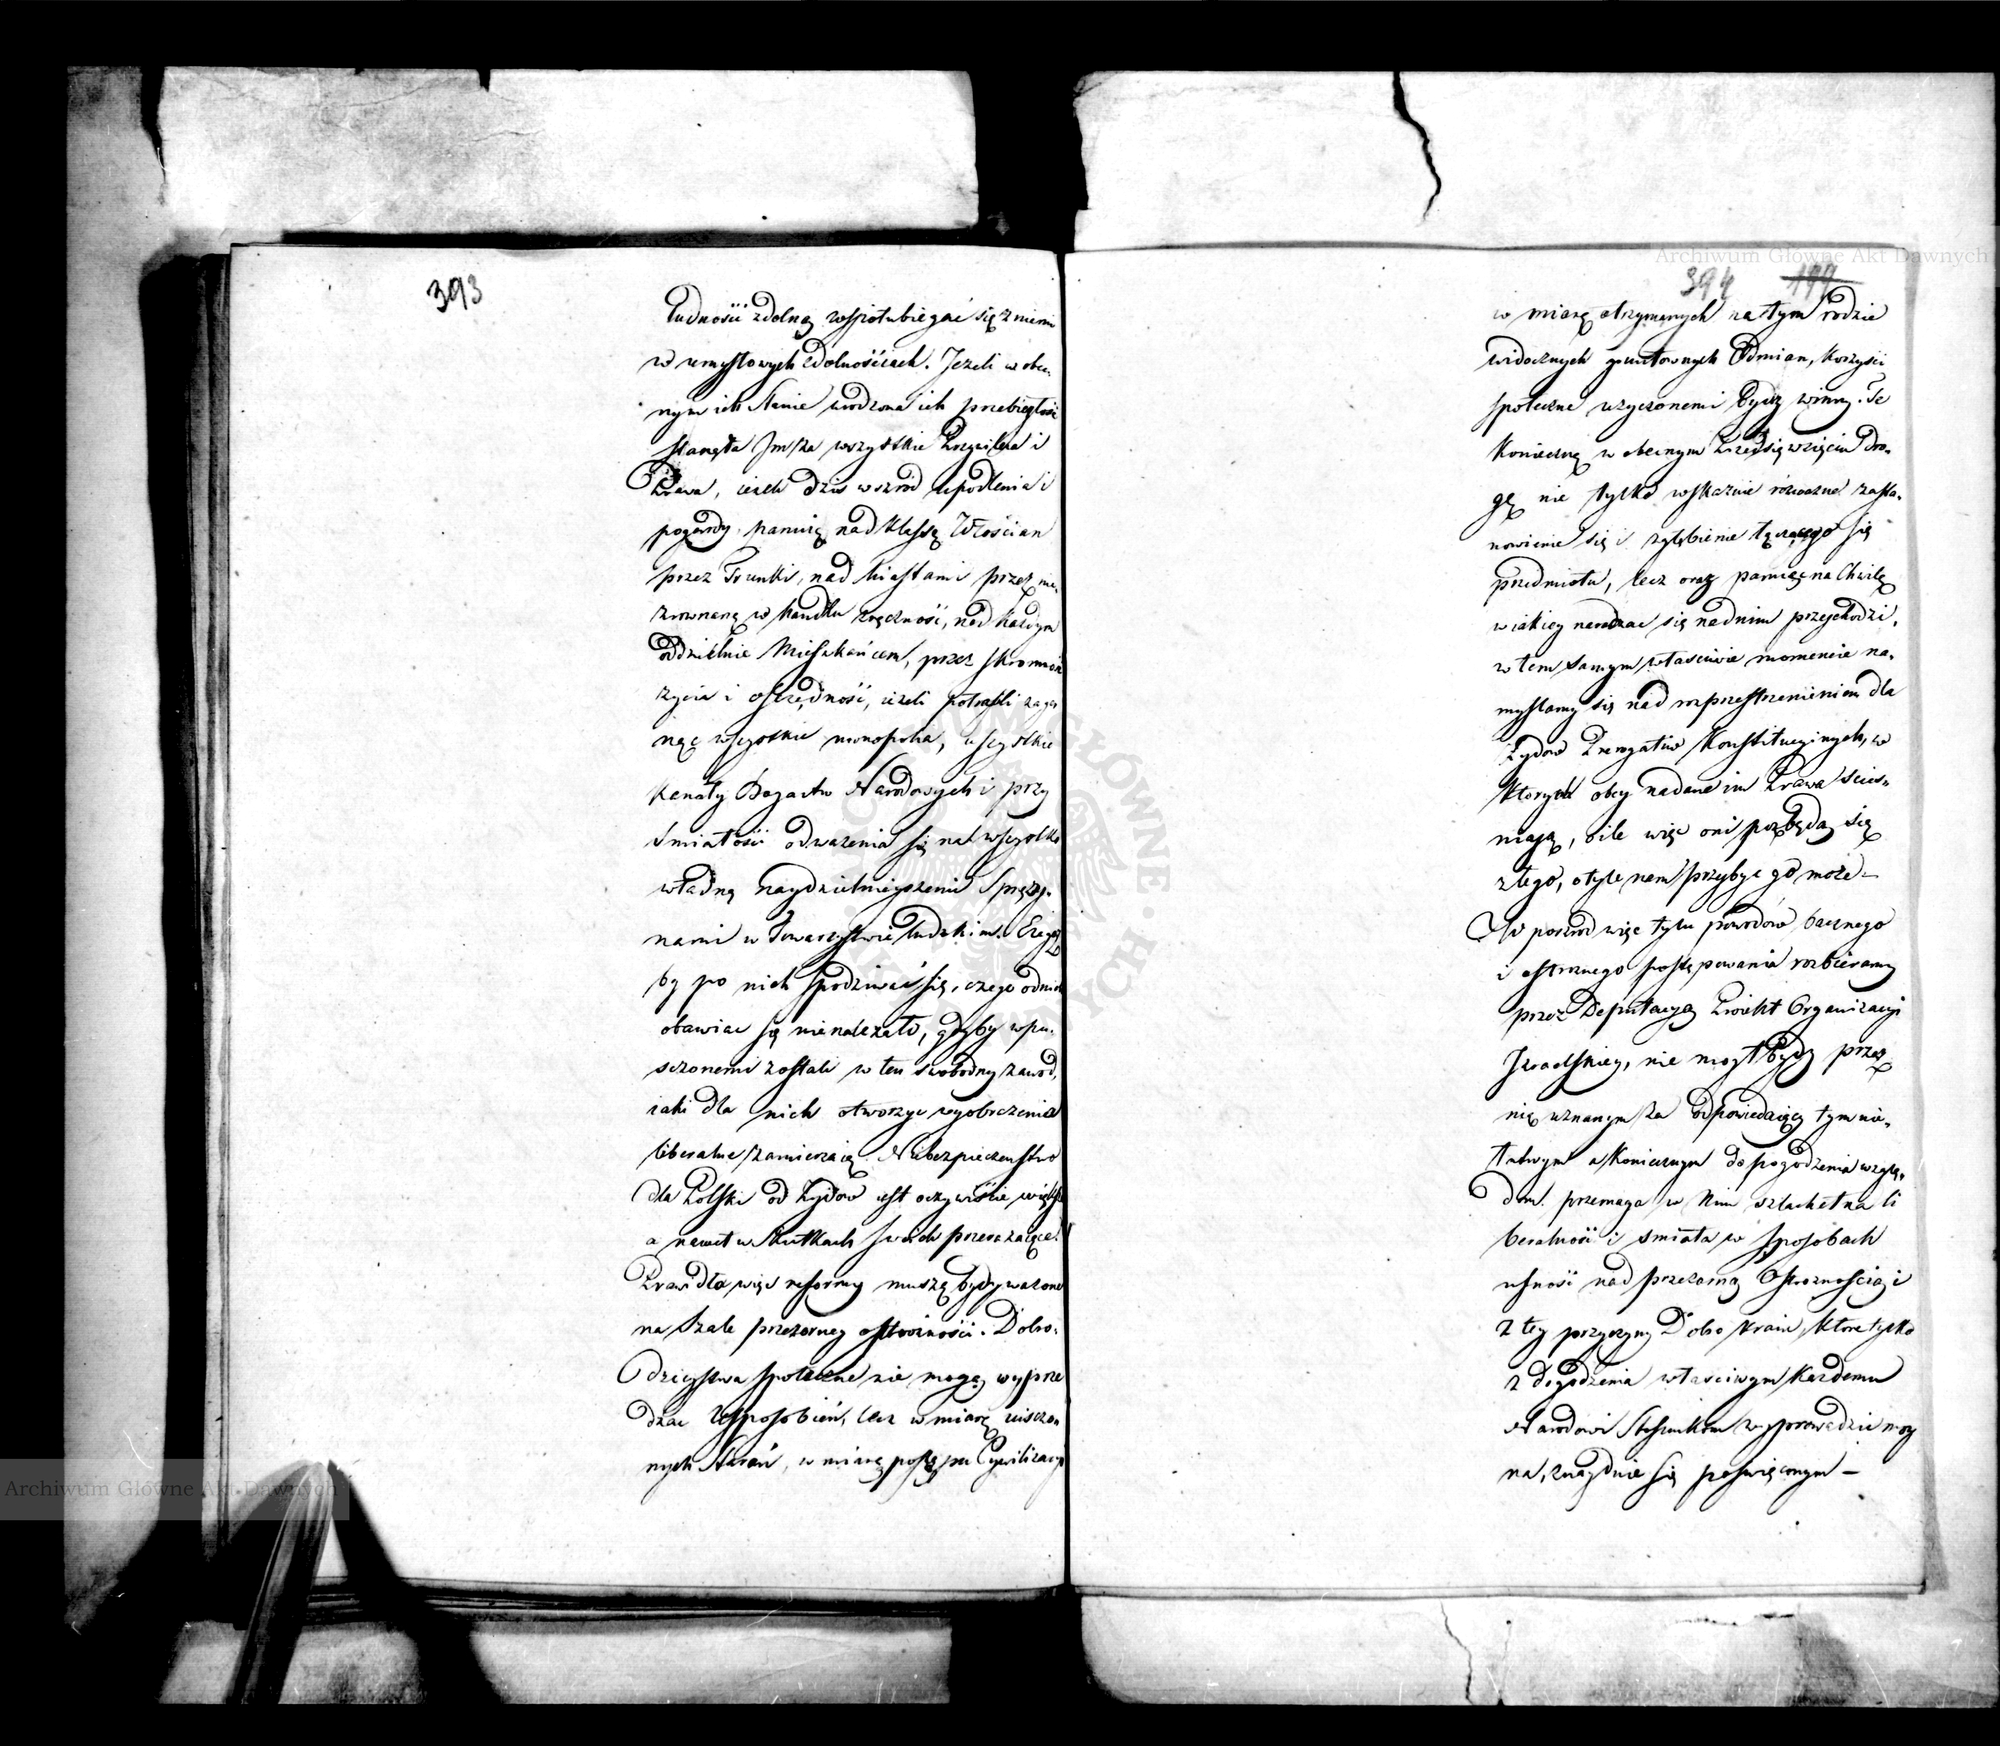 393
ludność zdolną wspołubiegać się z niemi
w umysłowych zdolnościach. Jeżeli w obec-
nym ich stanie wrodzona ich przebiegłość
stanęła Im za wszystkie Przywileia i
Prawa, ieżeli dziś wśrźód upodlenia i
pogardy panuią nad klassą Włościan
przez Trunki, nad Miastami przez nie-
zrownaną w handlu zręczność, nad każdym
oddzielnie Mieszkańcem, przez skromność
życia i oszczędność, ieżeli potrafili zagar
nąć wszystkie monopolia, wszystkie
kanały Bogactw Narodowych i przy
śmiałości odważenia się na wszystko
władną naydzielnieyszemi Spręży-
nami w Towarzystwie ludzkim. Czegoż
by po nich spodziwać się, czego od nich
obawiac się nienależało, gdyby wpu-
szczonemi zostali w ten swobodny zawod,
iaki dla nich otworzyc wyobrażenia
liberalne zamierzaią. Niebezpieczenstwo
dla Polski od Żydów iest oczywiście większe
a nawet w skutkach swoich przerażaiące.
Prawidła więc reformy muszą bydź ważone
na szale przezorney ostrożności. Dobro-
dzieystwa społeczne nie mogą wyprze
dzac usposobień, lecz w miarę uiszczo-
nych starań, w miarę postępu Cywilizacyi
Archiwum Główne Akt Dawnych
394 199
w miarę otrzymanych na tym rodzie
widocznych gruntownych Odmian, korzyści
społeczne użyczonemi bydź winny. Tę
konieczną w obecnym Przedsięwzięciu dro-
gę nie tylko wskazuie rozważne zasta-
nowienie się i zgłębienie tyczącego się
przedmiotu, lecz oraz pamięć na Chwilę
w iakiey naradzac się nad nim przychodzi,
w tem samym właściwie momencie na-
myslamy się nad rozprzestrzenieniem dla
Żydow Prerogatiw Konstitucyinych, w
ktorych obcy nadane im Prawa scies-
niaią, o ile więc oni pozbędą się
złego, otyle nam przybyć go może —
W pośrzod więc tylu powodów bacznego
i ostrożnego postępowania rozbierany
przez Deputacyą Proiekt Organizacyi
Izraelskiey, nie mogł bydź przez
nię uznanym za odpowiedaiący tym nie-
łatwym a koniecznym do pogodzenia wzglę-
dom. przemaga w Nim szlachetna li
beralność i śmiała w sposobach
ufność nad przezorną Ostrożnością i
z tey przyczyny Dobro Kraiu, które tylko
z dogodzenia właściwym każdemu
Narodowi Stosunkom wyprowadzić moż
na, znayduie się poswięconym —
Archiwum Główne Akt Dawnych